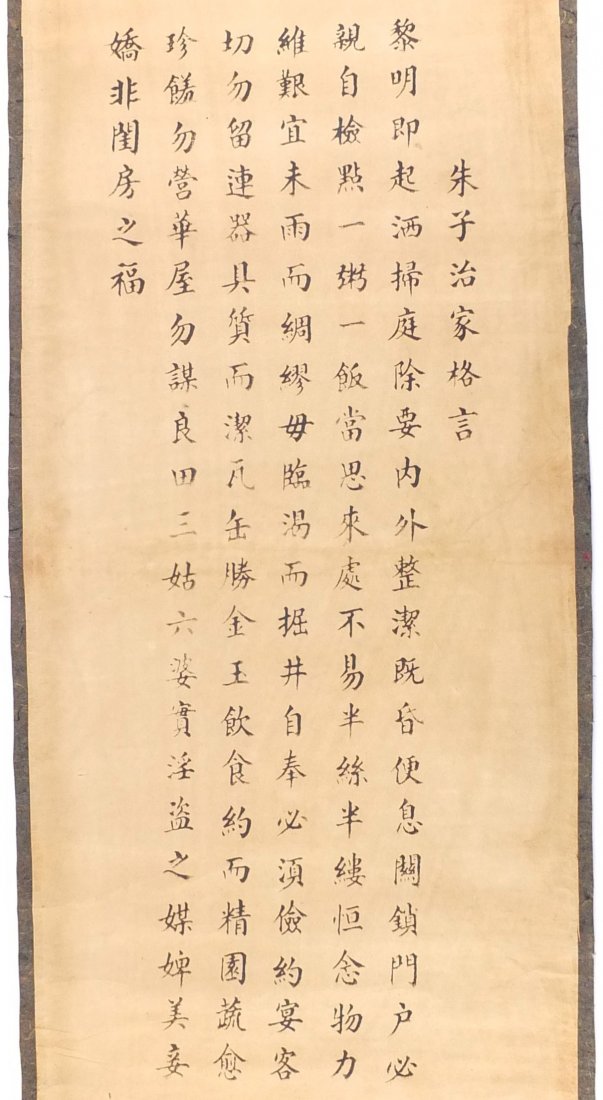 朱子治家格言
黎明即起洒掃庭除要内外整潔既昏便息關鎖門户必
親自檢點一粥一飯當思來處不易半絲半縷恒念物力
維艱宜未雨而綢繆毋臨渴而掘井自奉必須儉約宴客
切勿留連器具質而潔瓦缶勝金玉飲食約而精園蔬愈
珍饈勿營華屋勿謀良田三姑六婆實淫盜之媒婢美妾
嬌非閨房之福